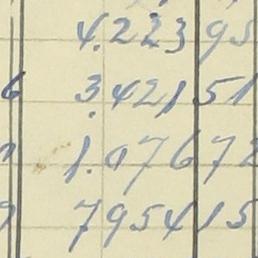 4.223 95
6 3.421 51
1.076 72
795415